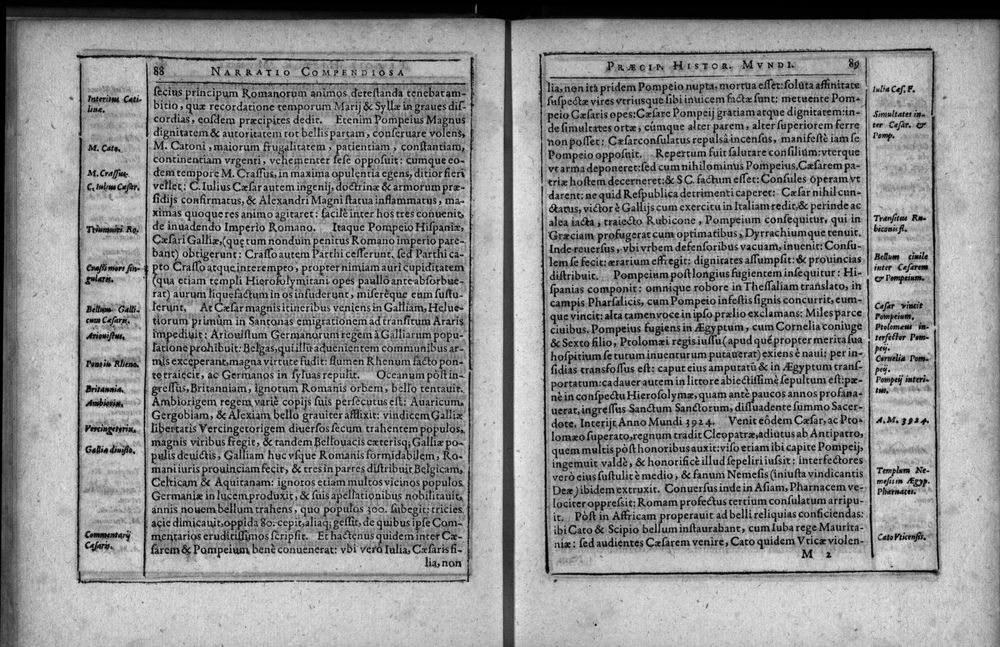 88 NARRATIO COMPENDIOSA
Interitus Catilinæ.
M. Cato.
M. Crassus.
C. Iulius Cæsar.
Triumuiri Ro.
Crassi mors singularis.
Bellum Gallicum Cæsaris.
Ariouistus.
Pons in Rheno.
Britannia.
Ambiorix.
Vercingetorix.
Gallia diuisio.
Commentarij Cæsaris.
secius principum Romanorum animos detestanda tenebat ambitio,
quæ recordatione temporum Marij & Syllæ in graues discordias,
eosdem præcipites dedit. Etenim Pompeius Magnus
dignitatem & autoritatem tot bellis partam, conseruare volens,
M. Catoni, maiorum frugalitatem, patientiam, constantiam,
continentiam vrgenti, vehementer sese opposuit: cumque eodem
tempore M. Crassus, in maxima opulentia egens, ditior fieri
vellet: C. Iulius Cæsar autem ingenij, doctrinæ & armorum præsidijs
confirmatus, & Alexandri Magni statua inflammatus, maximas
quoque res animo agitaret: facilè inter hos tres conuenit,
de inuadendo Imperio Romano. Itaque Pompeio Hispaniæ,
Cæsari Galliæ, (quę tum nondum penitus Romano imperio parebant)
obtigerunt: Crasso autem Parthi cesserunt, sed Parthi capto
Crasso atque interempto, propter nimiam auri cupiditatem
(qua etiam templi Hierosolymitani opes paullò ante absorbuerat)
aurum liquefactum in os infuderunt, miserèque eum sustulerunt.
At Cæsar magnis itineribus veniens in Galliam, Heluetiorum
primùm in Santonas emigrationem ad transitum Araris
impediuit: Ariouistum Germanorum regem à Galliarum populatione
prohibuit. Belgas, qui illũ aduenientem communibus armis
exceperant, magna virtute fudit: flumen Rhenum facto ponte
traiecit, ac Germanos in syluas repulit. Oceanum pòst ingressus,
Britanniam, ignotum Romanis orbem, bello tentauit.
Ambiorigem regem variè copijs suis persecutus est: Auaricum,
Gergobiam, & Alexiam bello grauiter afflixit: vindicem Galliæ
libertatis Vercingetorigem diuersos secum trahentem populos,
magnis viribus fregit, & tandem Bellouacis cæterisq; Galliæ populis
deuictis, Galliam huc vsque Romanis formidabilem, Romani
iuris prouinciam fecit, & tres in partes distribuit Belgicam,
Celticam & Aquitanam: ignotos etiam multos vicinos populos
Germaniæ in lucem produxit, & suis apellationibus nobilitauit,
annis nouem bellum trahens, quo populos 300. subegit: tricies
acie dimicauit, oppida 80. cepit, aliaq; gessit, de quibus ipse Commentarios
eruditissimos scripsit. Et hactenus quidem inter Cæsarem
& Pompeium benè conuenerat: vbi verò Iulia, Cæsaris filia,
non
PRÆCIP. HISTOR. MVNDI. 89
lia, non ità pridem Pompeio nupta, mortua esset: soluta affinitate
suspectæ vires vtriusque sibi inuicem factæ sunt: metuente Pompeio
Cæsaris opes: Cæsare Pompeij gratiam atque dignitatem: inde
simultates ortæ, cúmque alter parem, alter superiorem ferre
non posset: Cæsar consulatus repulsâ incensus, manifestè iam se
Pompeio opposuit. Repertum fuit salutare consilium: vterque
vt arma deponeret: sed cum nihilominus Pompeius, Cæsarem patriæ
hostem decerneret: & S C. factum esset: Consules operam vt
darent: ne quid Respublica detrimenti caperet: Cæsar nihil cunctatus,
victor è Gallijs cum exercitu in Italiam redit, & perinde ac
alea iacta, traiecto Rubicone, Pompeium consequitur, qui in
Græciam profugerat cum optimatibus, Dyrrachiumque tenuit.
Inde reuersus, vbi vrbem defensoribus vacuam, inuenit: Consulem
se fecit: ærarium effregit: dignitates assumpsit: & prouincias
distribuit. Pompeium post longius fugientem insequitur: Hispanias
componit: omnique robore in Thessaliam translato, in
campis Pharsalicis, cum Pompeio infestis signis concurrit, eumque
vincit: alta tamen voce in ipso prælio exclamans: Miles parce
ciuibus. Pompeius fugiens in Ægyptum, cum Cornelia coniuge
& Sexto filio, Ptolomæi regis iussu (apud quẽ propter merita sua
hospitium se tutum inuenturum putauerat) exiens è naui: per insidias
transfossus est: caput eius amputatũ & in Ægyptum transportatum:
cadauer autem in littore abiectissimè sepultum est: pæne
in conspectu Hierosolymæ, quam antè paucos annos profanauerat,
ingressus Sanctum Sanctorum, dissuadente summo Sacerdote.
Interijt Anno Mundi 3924. Venit eôdem Cæsar, ac Ptolomæo
superato, regnum tradit Cleopatræ, adiutus ab Antipatro,
quem multis pòst honoribus auxit: viso etiam ibi capite Pompeij,
ingemuit valdè, & honorificè illud sepeliri iussit: Interfectores
verò eius sustulit è medio, & fanum Nemesis (iniusta vindicantis
Deæ) ibidem extruxit. Conuersus inde in Asiam, Pharnacem velociter
oppressit: Romam profectus tertium consulatum arripuit.
Pòst in Affricam properauit ad belli reliquias conficiendas:
ibi Cato & Scipio bellum instaurabant, cum Iuba rege Mauritaniæ:
sed audientes Cæsarem venire, Cato quidem Vticæ violen-
M 2
Iulia Cæs. F.
Simultates inter Cæsar. & Pomp.
Transitus Rubiconis fl.
Bellum ciuile inter Cæsarem & Pompeium.
Cæsar vincit Pompeium.
Ptolomæus interfector Pompeij.
Cornelia Pompeij.
Pompeij interitus.
A. M. 3924.
Templum Nemesis in Ægyp.
Pharnaces.
Cato Vticensis.